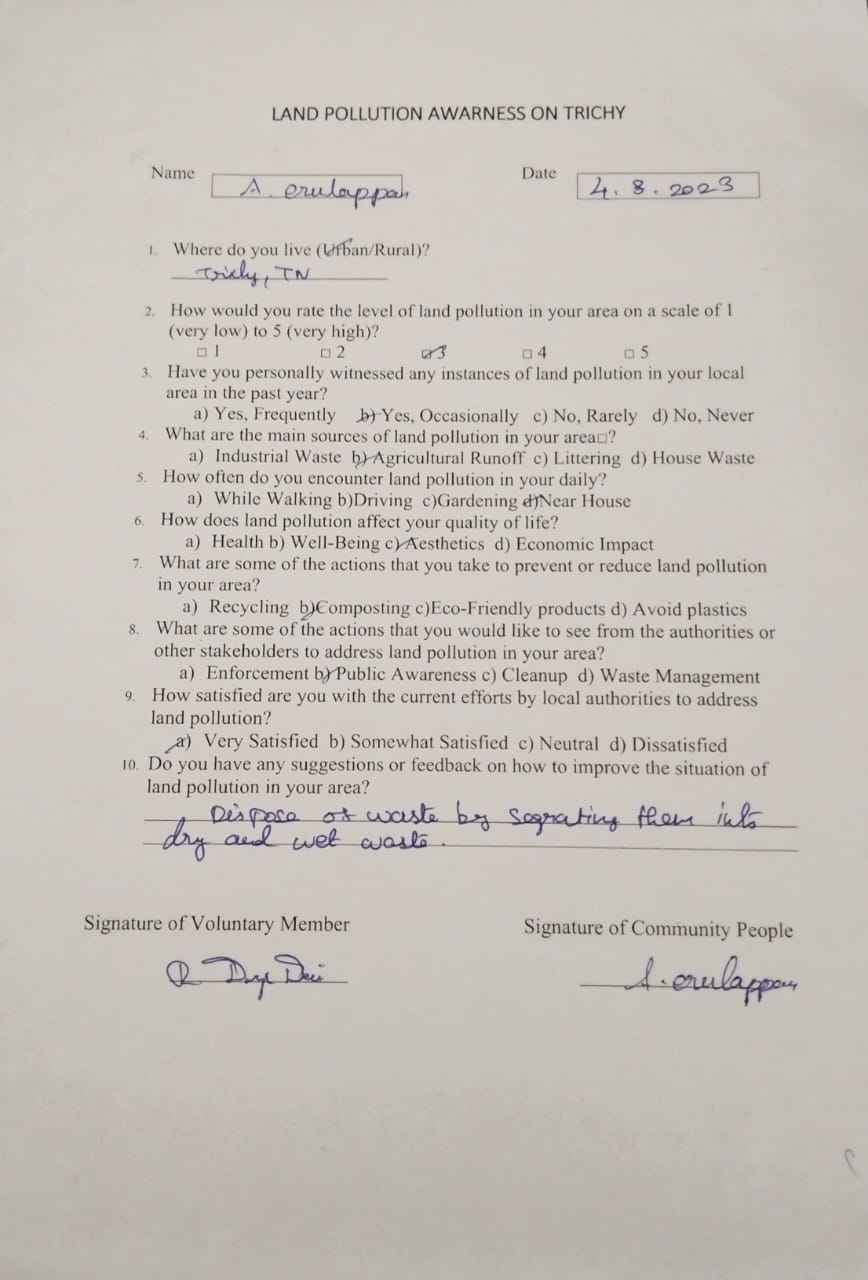 LAND POLLUTION AWARNESS ON TRICHY
Name A. erulappan Date 4.8.2023
1. Where do you live (Urban/Rural)?
Trichy, TN
2. How would you rate the level of land pollution in your area on a scale of 1
(very low) to 5 (very high)?
□ 1 □ 2 □ 3 □ 4 □ 5
3. Have you personally witnessed any instances of land pollution in your local
area in the past year?
a) Yes, Frequently b) Yes, Occasionally c) No, Rarely d) No, Never
4. What are the main sources of land pollution in your area□?
a) Industrial Waste b) Agricultural Runoff c) Littering d) House Waste
5. How often do you encounter land pollution in your daily?
a) While Walking b)Driving c)Gardening d)Near House
6. How does land pollution affect your quality of life?
a) Health b) Well-Being c) Aesthetics d) Economic Impact
7. What are some of the actions that you take to prevent or reduce land pollution
in your area?
a) Recycling b)Composting c)Eco-Friendly products d) Avoid plastics
8. What are some of the actions that you would like to see from the authorities or
other stakeholders to address land pollution in your area?
a) Enforcement b) Public Awareness c) Cleanup d) Waste Management
9. How satisfied are you with the current efforts by local authorities to address
land pollution?
a) Very Satisfied b) Somewhat Satisfied c) Neutral d) Dissatisfied
10. Do you have any suggestions or feedback on how to improve the situation of
land pollution in your area?
Dispose of waste by Segrating them into
dry and wet waste.
Signature of Voluntary Member Signature of Community People
A. erulappan